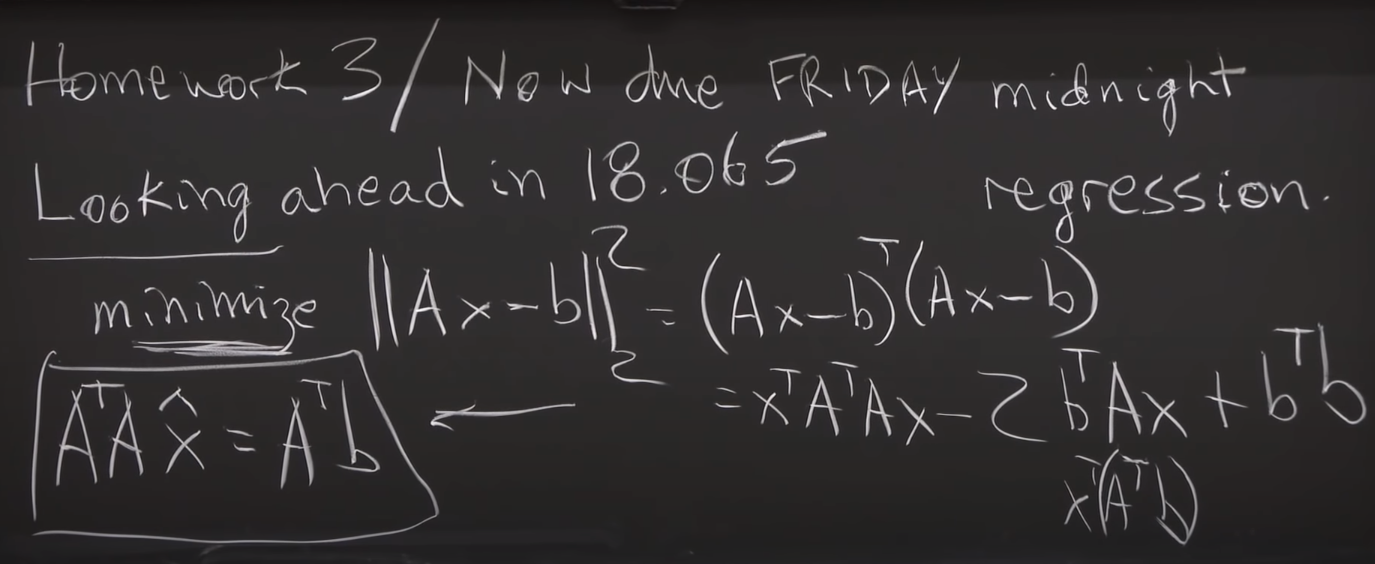 Homework 3/ Now due FRIDAY midnight
Looking ahead in 18.065 regression.
minimize ||Ax-b||₂² = (Ax-b)ᵀ(Ax-b)
= xᵀAᵀAx - 2 bᵀAx + bᵀb
AᵀA x̂ = Aᵀb ←
xᵀ(Aᵀb)